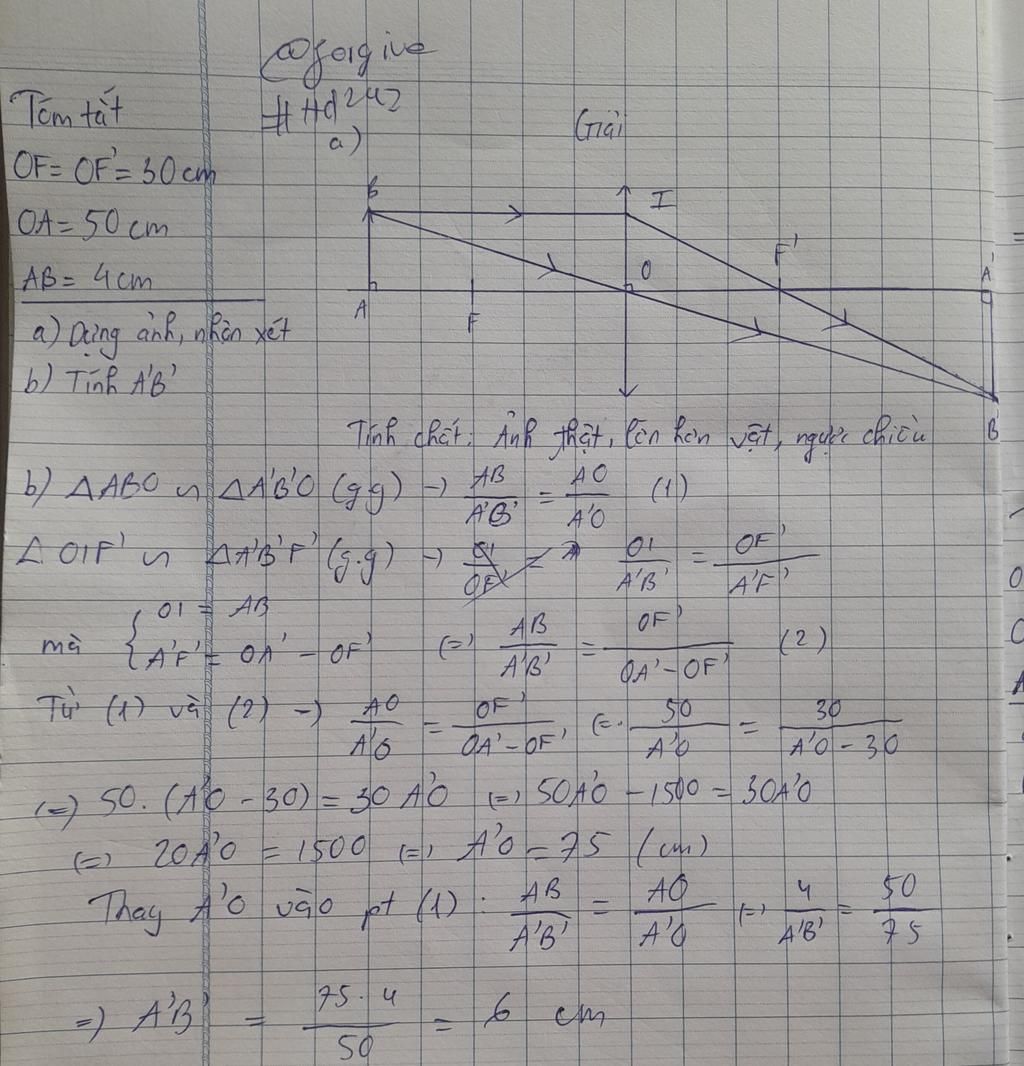 @forgive
Tóm tắt
#Hd247
a)
Giải
OF = OF' = 30 cm
OA = 50 cm
AB = 4 cm
a) Dựng ảnh, nhận xét
b) Tính A'B'
B
I
F'
A'
O
A
F
B'
Tính chất: Ảnh thật, lớn hơn vật, ngược chiều
b) ΔABO ∽ ΔA'B'O (g.g) → AB/A'B' = AO/A'O (1)
ΔOIF' ∽ ΔA'B'F' (g.g) → OI/A'B' = OF'/A'F'
mà { OI = AB
A'F' = OA' - OF' (=) AB/A'B' = OF'/OA'-OF' (2)
Từ (1) và (2) → AO/A'O = OF'/OA'-OF' (=) 50/A'O = 30/A'O - 30
(=) 50. (A'O - 30) = 30 A'O (=) 50A'O - 1500 = 30A'O
(=) 20A'O = 1500 (=) A'O = 75 (cm)
Thay A'O vào pt (1) : AB/A'B' = AO/A'O (=) 4/A'B' = 50/75
=) A'B' = 75.4/50 = 6 cm